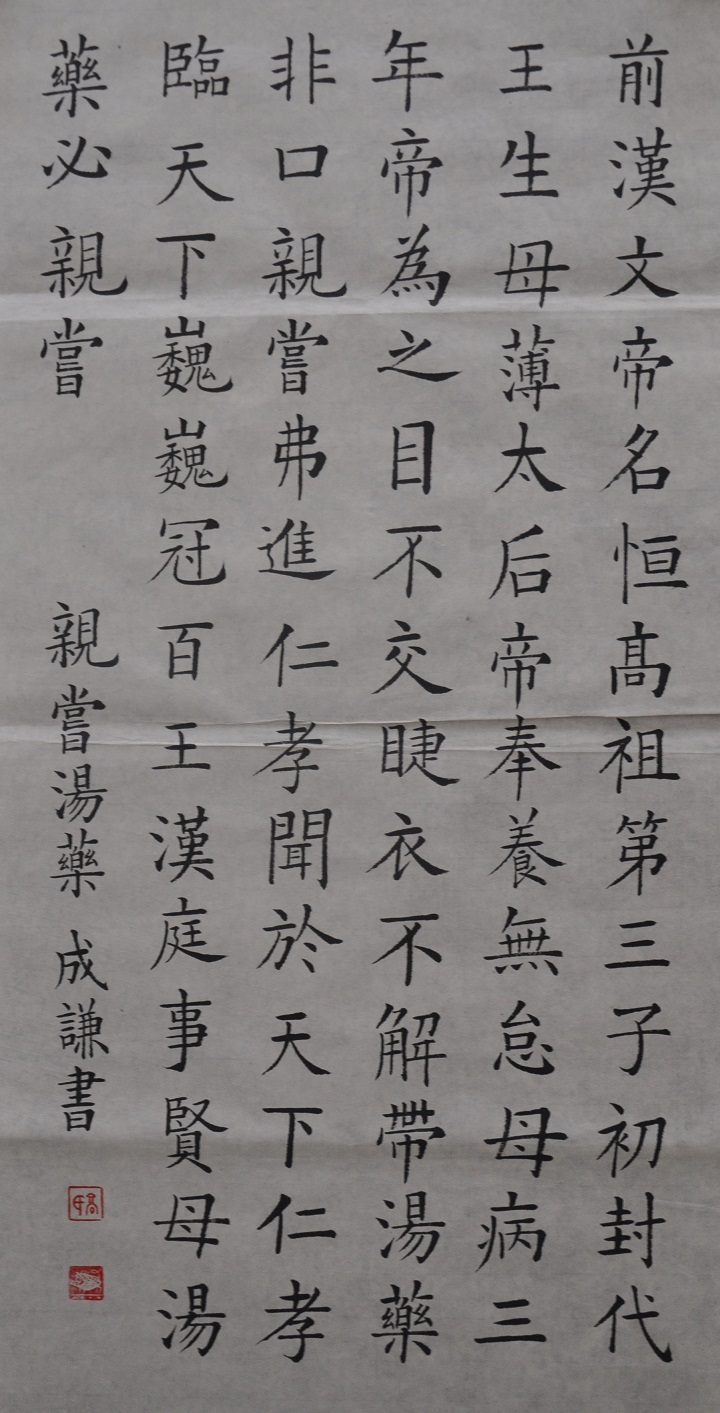 前漢文帝名恒髙祖第三子初封代
王生母薄太后帝奉養無怠母病三
年帝為之目不交睫衣不解帶湯藥
非口親嘗弗進仁孝聞於天下仁孝
臨天下巍巍冠百王漢庭事賢母湯
藥必親嘗
親嘗湯藥 成謙書